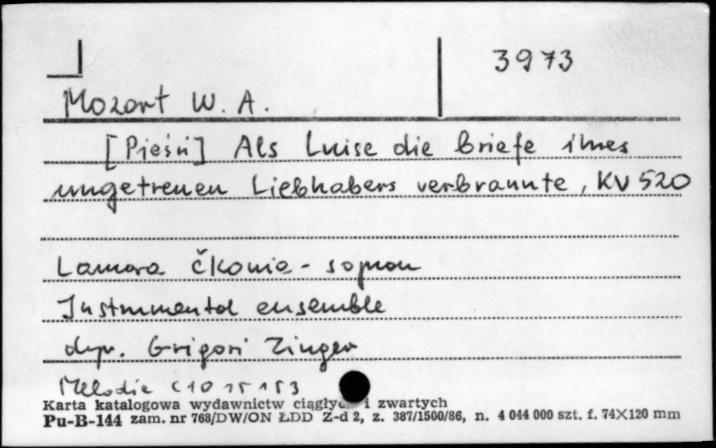 3973
Mozart W. A.
[Pieśń] Als Luise die Briefe ihres
ungetreuen Liebhabers verbrannte, KV 520
Lamara Čkonia - sopran
Instrumental ensemble
dyr. Grigori Zinger
Melodie C10 15153
Karta katalogowa wydawnictw ciągłych i zwartych
Pu-B-144 zam. nr 768/DW/ON ŁDD Z-d 2, z. 387/1500/86, n. 4 044 000 szt. f. 74×120 mm